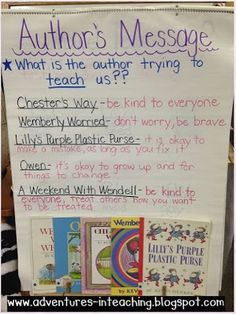 Author's Message
★ What is the author trying to
teach us??
Chester's Way - be kind to everyone
Wemberly Worried - don't worry, be brave
Lilly's Purple Plastic Purse - it is okay
to make a mistake, as long as you fix it
Owen - it's okay to grow up and for
things to change!
A Weekend With Wendell - be kind to
everyone, treat others how you want
to be treated
LILLY'S PURPLE
PLASTIC PURSE
www.adventures-inteaching.blogspot.com